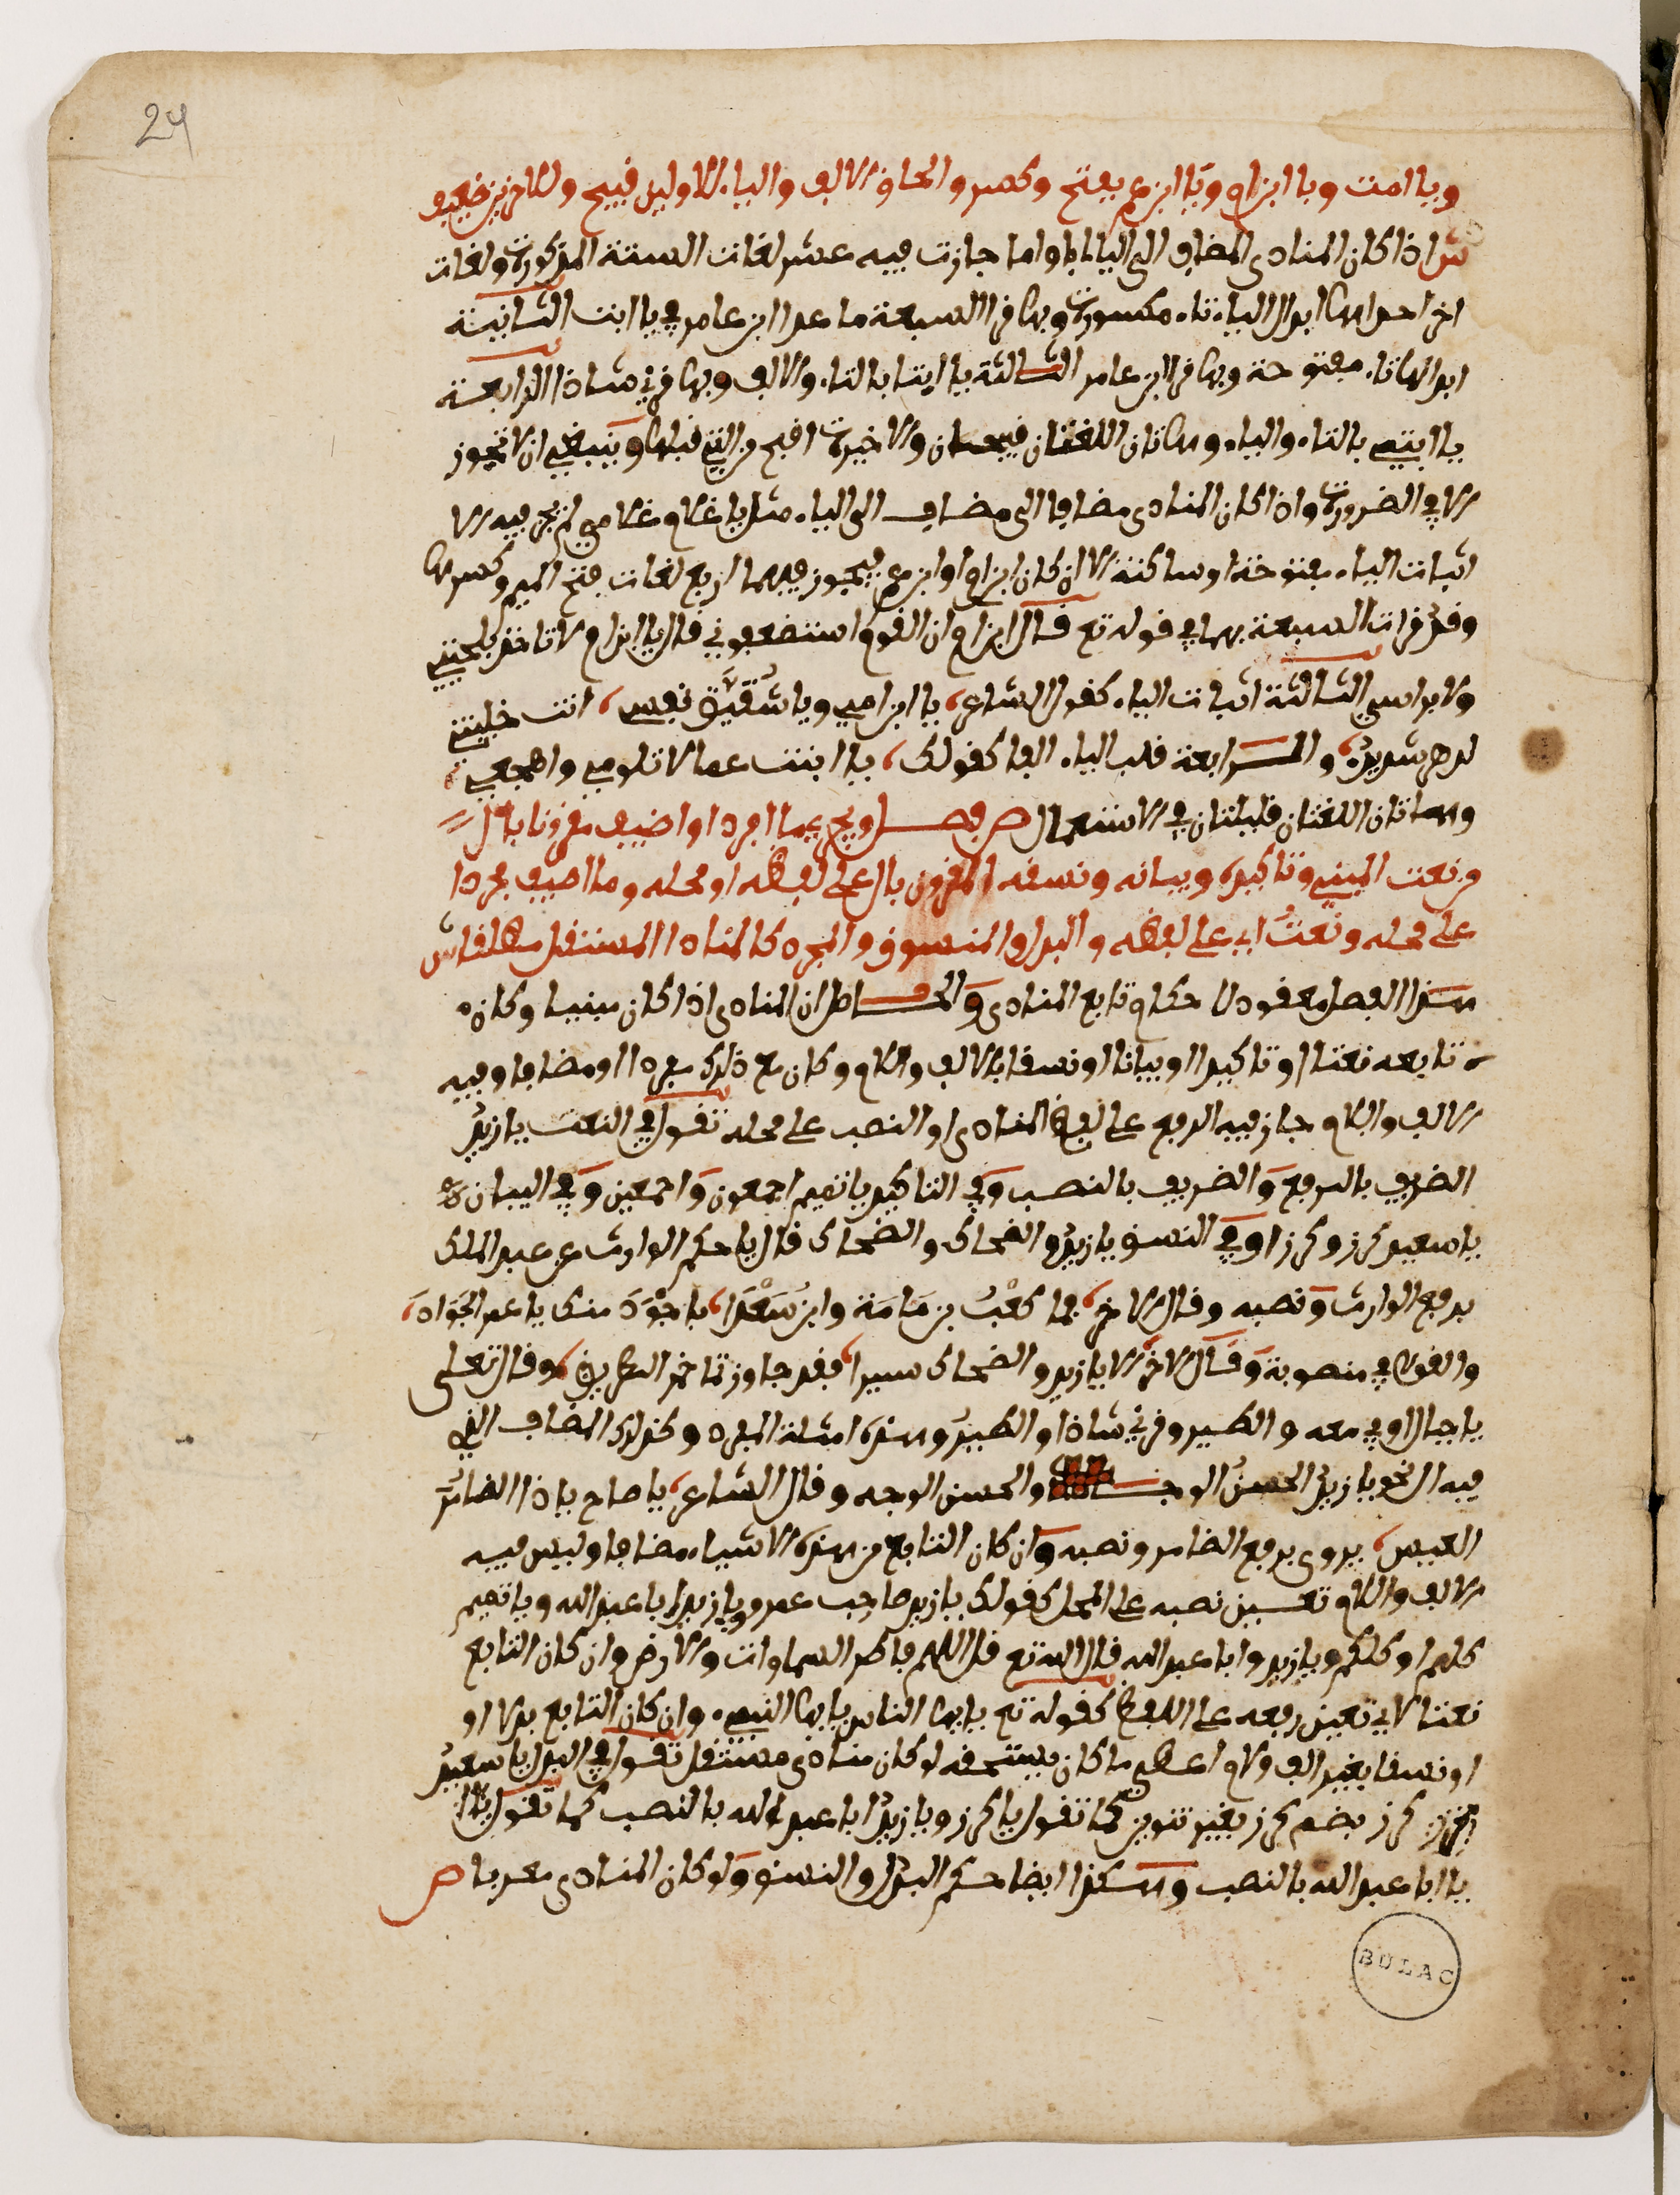 24
ويا امت ويا ابن ام ويا ابن عم بفتح وكسر والحاق الالف والياء للاولين قبيح وللاخرين ضعيف
ش اذا كان المنادى المضاف الى الياء ابا او اما جازت فيه عشر لغات الستة المذكورة ولغات
اخر احداها ابدال الياء تاء مكسورة وبها قرا السبعة ما عدا ابن عامر في يا ابت الثانية
ابدالها تاء مفتوحة وبها قرا ابن عامر الثالثة يا ابتا بالتاء والالف وبها قرئ شاذا الرابعة
يا ابتي بالتاء والياء وهاتان اللغتان قبيحتان والاخيرة اقبح من التي قبلها وينبغي ان لا تجوز
الا في الضرورة واذا كان المنادى مضافا الى مضاف الى الياء مثل يا غلام غلامي لم يجز فيه الا
اثبات الياء مفتوحة او ساكنة الا ان كان ابن ام او ابن عم فيجوز فيهما اربع لغات فتح الميم وكسرها
وقد قرات السبعة بهما في قوله تع قال ابن ام ان القوم استضعفوني قال يا ابن ام لا تاخذ بلحيتي
ولا براسي الثالثة اثبات الياء كقول الشاعر يا ابن امي ويا شقيق نفسي انت خليتني
لدهر شديد والرابعة قلب الياء الفا كقولك يا ابنت عما لا تلومي واهجعي
وهاتان اللغتان قليلتان في الاستعمال ص فصل ويجري ما افرد او اضيف مقرونا بال
من نعت المبني وتاكيده وبيانه ونسقه المقرون بال على لفظه او محله وما اضيف مجردا
على محله ونعت اي على لفظه والبدل والمنسوق والمجرد كالمنادا المستقل مطلقا ش
هذا الفصل معقود لاحكام تابع المنادى والحاصل ان المنادى اذا كان مبنيا وكان
تابعه نعتا او تاكيدا او بيانا او نسقا بالالف واللام وكان مع ذلك مفردا او مضافا وفيه
الالف واللام جاز فيه الرفع على لفظ المنادى او النصب على محله تقول في النعت يا زيد
الظريف بالرفع والظريف بالنصب وفي التاكيد يا تميم اجمعون واجمعين وفي البيان
يا سعيد كرز وكرزا وفي النسق يا زيد والضحاك والضحاك قال يا حكم الوارث عن عبد الملك
برفع الوارث ونصبه وقال الاخر فما كعب بن مامة وابن سعدا باجود منك يا عمر الجوادا
والقوافي منصوبة وقال الاخر الا يا زيد والضحاك سيرا فقد جاوزتما خمر الطريق وقال تعلى
يا جبال اوبي معه والطير وقرئ شاذا والطير وهذه امثلة المفرد وكذلك المضاف الذي
فيه ال نحو يا زيد الحسن الوجه والحسن الوجه وقال الشاعر يا صاح يا ذا الضامر
العيس يروى برفع الضامر ونصبه وان كان التابع من هذه الاشياء مضافا وليس فيه
الالف واللام تعين نصبه على المحل كقولك يا زيد صاحب عمرو ويا زيد ابا عبد الله ويا تميم
كلهم او كلكم ويا زيد وابا عبد الله قال الله تع قل اللهم فاطر السماوات والارض وان كان التابع
نعتا لاي تعين رفعه على اللفظ كقوله تع يايها الناس يايها النبيء وان كان التابع بدلا او
او نسقا بغير الف ولام اعطي ما كان يستحقه لو كان منادى مستقل تقول في البدل يا سعيد
كرز بضم كرز بغير تنوين كما تقول يا كرز ويا زيد ابا عبد الله بالنصب كما تقول
يا ابا عبد الله بالنصب وهكذا ايضا حكم البدل والنسق ولو كان المنادى معربا ص
BULAC